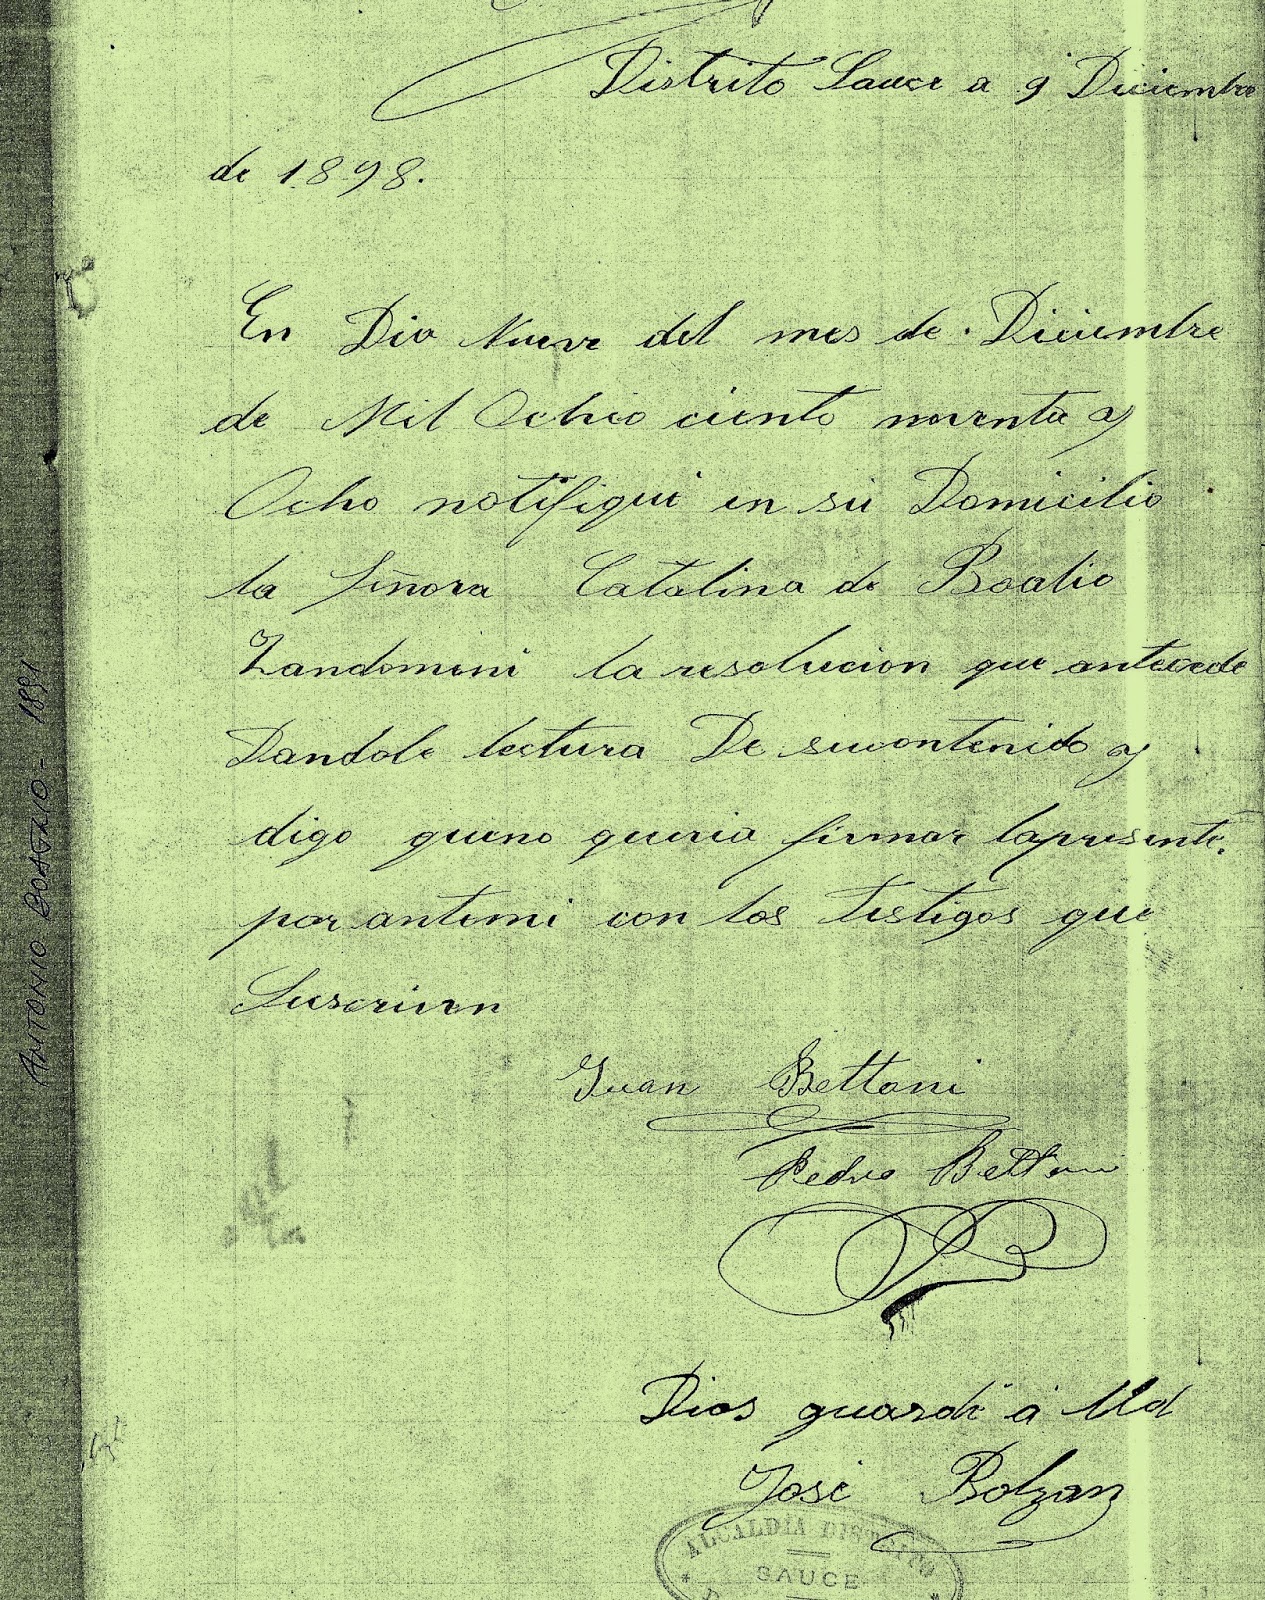 Distrito Sauce a 9 Diciembre
de 1898.
En Dia Nueve del mes de Diciembre
de Mil Ochio ciento noventa y
Ocho notifiqué en sú Domicilio
la Señora Catalina de Boalio
Zandomeni la resolucion que antecede
Dandole lectura De sucontenido y
digo queno queria firmar lapresente,
por antemi con los testigos que
Suscriven
Juan Bettoni
Pedro Bettoni
Dios guarde á Ud
José Bolzan
ALCALDIA DISTRITO
SAUCE
ANTONIO BOALIO - 1891